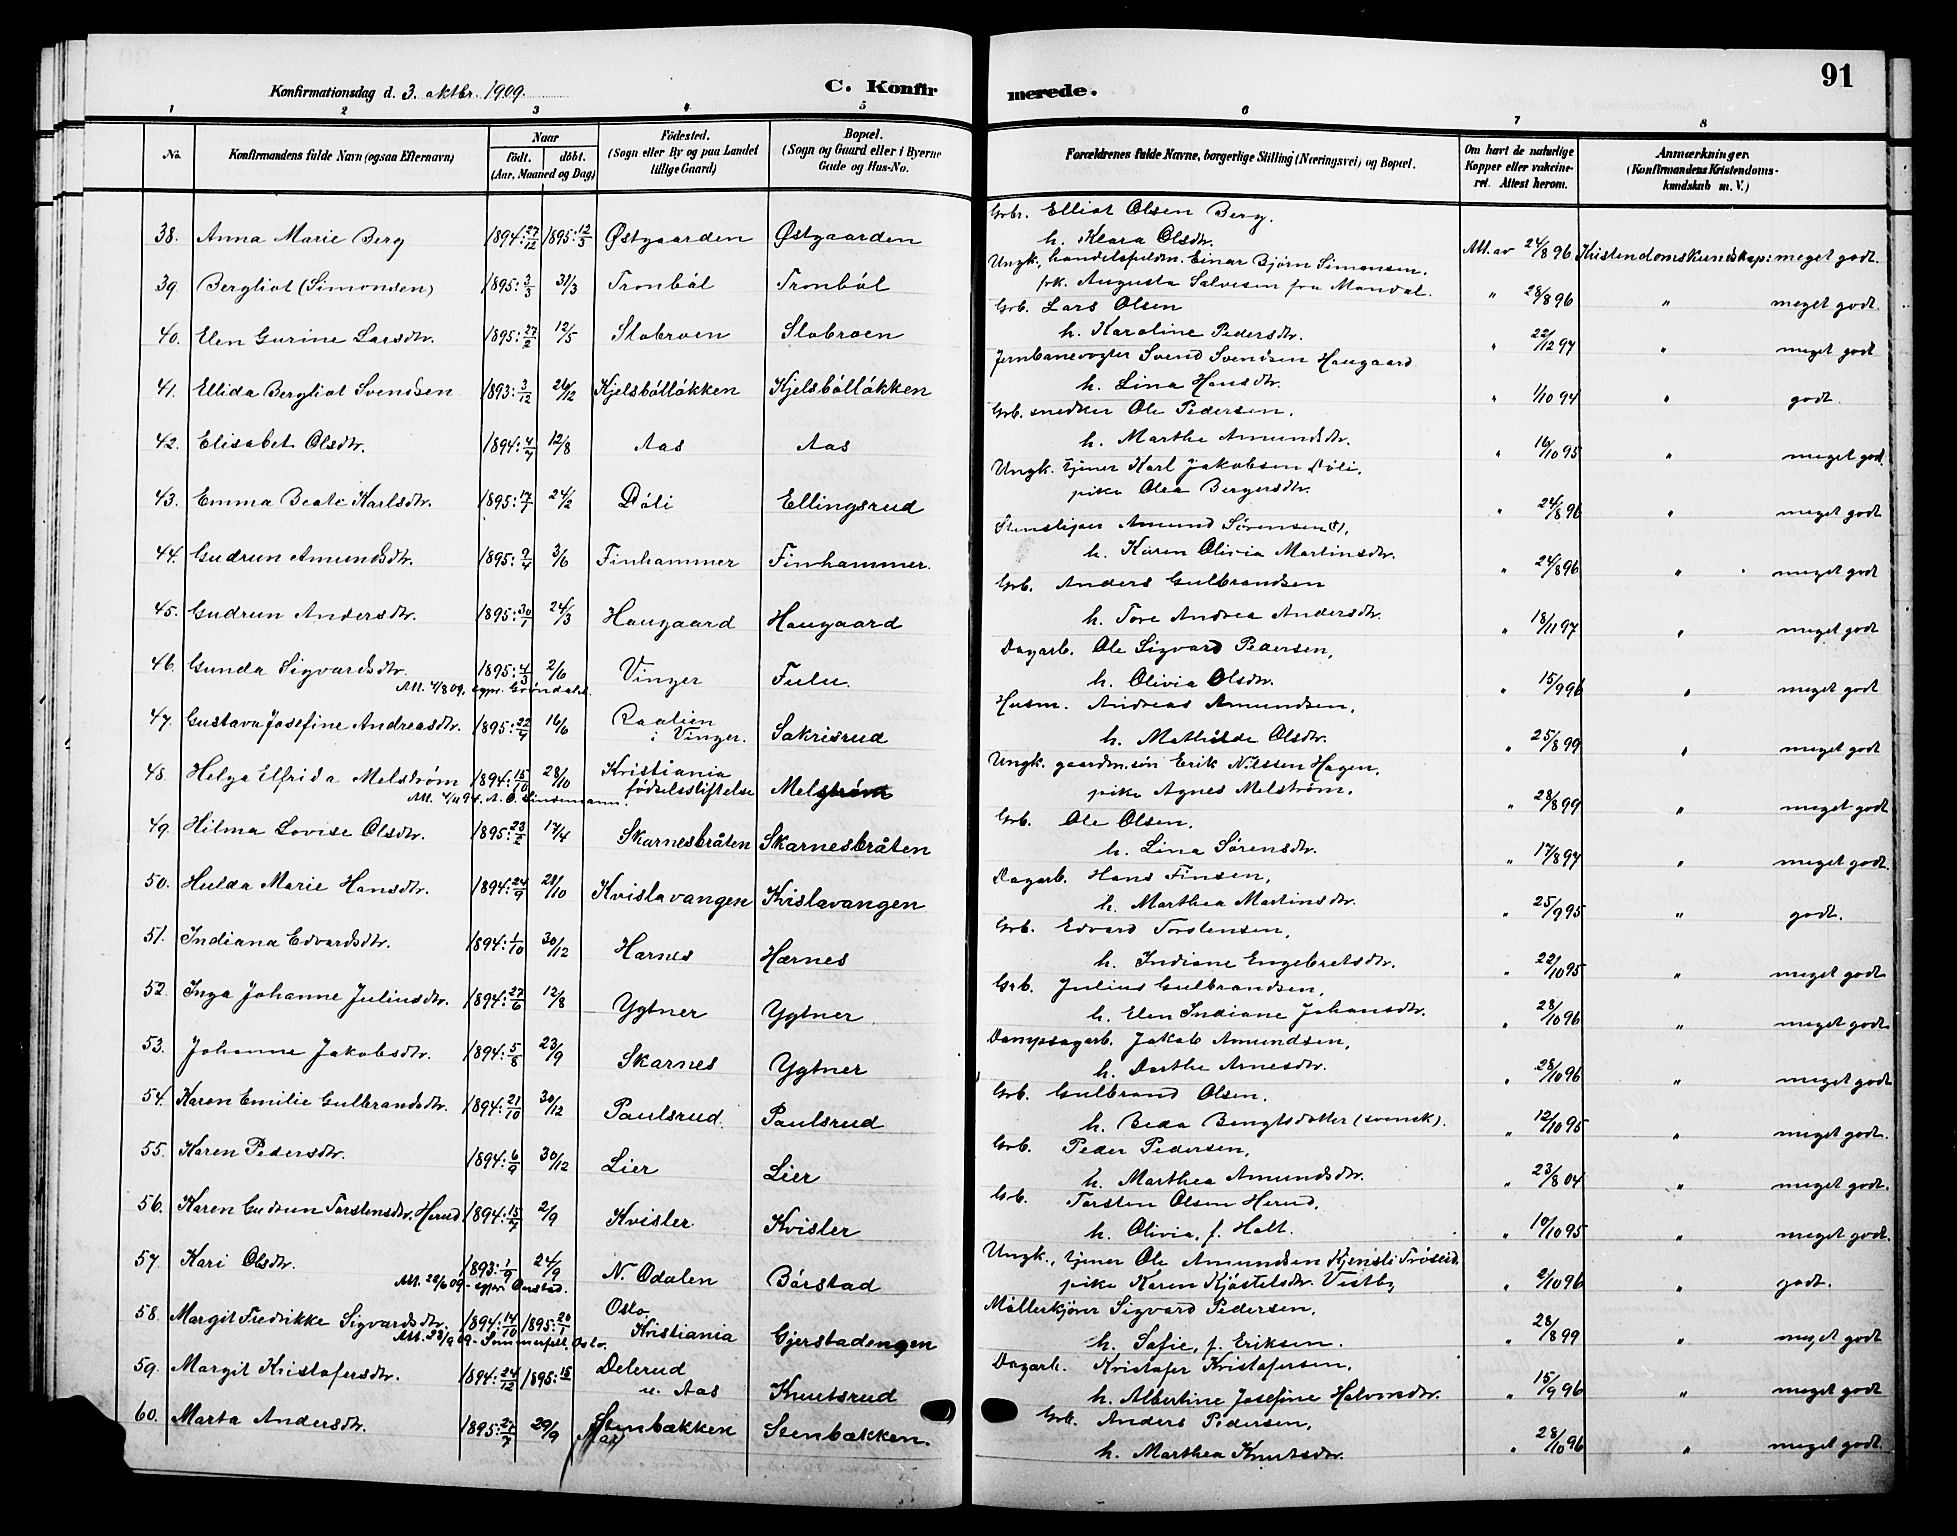 Konfirmationsdag d. 3. oktbr. 1909.
C. Konfirmerede.
91
1 2 3 4 5 6 7 8
No.
Konfirmandens fulde Navn (ogsaa Efternavn)
Naar
födt. döbt.
(Aar, Maaned og Dag)
Födested.
(Sogn eller By og paa Landet tillige Gaard)
Bopæl.
(Sogn og Gaard eller i Byerne Gade og Hus-No.
Forældrenes fulde Navne, borgerlige Stilling (Næringsvei) og Bopæl.
Om havt de naturlige Kopper eller vakcineret. Attest herom.
Anmærkninger.
(Konfirmandens Kristendomskundskab m. V.)
38. Anna Marie Berg 1894: 27/12 1895: 12/5 Østgaarden Østgaarden Grbr. Elliot Olsen Berg. h. Klara Olsdtr. Att. av 24/8 96 Kristendomskundskap: meget godt.
39 Bergliot (Simonsen) 1895: 3/3 31/3 Tronböl Tronböl Ungk., handelsfuldm. Einar Bjørn Simonsen, frk. Augusta Salvesen fra Mandal. " 28/8 96 " meget godt.
40. Elen Gurine Larsdtr. 1895: 27/2 12/5 Slobroen Slobroen Grb. Lars Olsen h. Karoline Pedersdtr. " 22/12 97 " meget godt
41. Ellida Bergliot Svendsen 1893: 3/12 26/12 Kjelsbölløkken Kjelsbölløkken Jernbanevogter Svend Svendsen Haugaard h. Lina Hansdtr. " 1/10 94 " godt.
42. Elisabet Olsdtr. 1894: 4/7 12/8 Aas Aas Grb. snedker Ole Pedersen, h. Marthe Amundsdtr. " 16/10 95 " meget godt.
43. Emma Beate Karlsdtr. 1895: 17/1 24/2 Döli Ellingsrud Ungk. tjener Karl Jakobsen Döli, pike Olea Bergersdtr. " 24/8 96 " meget godt
44. Gudrun Amundsdtr. 1895: 9/4 3/6 Finhammer Finhammer. Stensliper Amund Sørensen (†), h. Karen Olivia Martinsdtr. " 24/8 96 " meget godt
45. Gudrun Andersdtr. 1895: 30/1 24/3 Haugaard Haugaard Grb. Anders Gulbrandsen h. Tore Andrea Andersdtr. " 18/11 97 " meget godt
46. Gunda Sigvardsdtr. 1895: 4/3 2/6 Vinger Fulu. Dagarb. Ole Sigvard Pedersen, h. Olivia Olsdtr. " 15/9 96 " meget godt
Att. 4/8 09. Grøndahl.
47. Gustava Josefine Andreasdtr. 1895: 22/4 16/6 Raalien i Vinger. Sakrisrud Husm. Andreas Amundsen, h. Mathilde Olsdtr. " 25/8 99 " meget godt
48. Helga Elfrida Melstrøm 1894: 15/10 28/10 Kristiania fødselsstiftelse Melstrøm Ungk. gaardm.søn Erik Nilssen Hagen, pike Agnes Melstrøm. " 28/8 99 " meget godt
49. Hilma Lovise Olsdtr. 1895: 23/2 17/4 Skarnesbråten Skarnesbråten Grb. Ole Olsen, h. Lina Sørensdtr. " 17/8 97 " meget godt.
50. Hulda Marie Hansdtr. 1894: 24/9 28/10 Kvislavangen Kvislavangen Dagarb. Hans Finsen, h. Marthea Martinsdtr. " 25/9 95 " godt.
51. Indiana Edvardsdtr. 1894: 1/10 30/12 Harnes Hærnes Grb. Edvard Torstensen, h. Indiane Engebretsdtr. " 22/10 95 " meget godt
52. Inga Johanne Juliusdtr. 1894: 27/6 12/8 Ygtner Ygtner Grb. Julius Gulbrandsen, h. Elen Indiane Johansdtr. " 28/10 96 " meget godt
53. Johanne Jakobsdtr. 1894: 5/8 23/9 Skarnes Ygtner Dampsagarb. Jakob Amundsen, h. Dorthe Arnesdtr. " 28/10 96 " meget godt
54. Karen Emilie Gulbrandsdtr. 1894: 21/10 30/12 Paulsrud. Paulsrud Grb. Gulbrand Olsen. h. Beda Bengtsdotter (svensk). " 12/10 95 " meget godt.
55. Karen Pedersdtr. 1894: 6/9 30/12 Lier Lier Grb. Peder Pedersen, h. Marthea Amundsdtr. " 23/8 04 " meget godt.
56. Karen Gudrun Torstensdtr. Herud 1894: 15/7 2/9 Kvisler Kvisler Grb. Torsten Olsen Herud, h. Olivia, f. Holt. " 10/10 95 " meget godt.
57. Kari Olsdtr. 1893: 1/9 24/9 N. Odalen Börstad Ungk., tjener Ole Amundsen Kjensli Trøseid, pike Karen Kjöstelsdtr. Vestby " 2/10 96 " godt.
58. Margit Fredrikke Sigvardsdtr. 1894: 14/10 1895: 20/1 Oslo Kristiania Gjerstadengen Möllerkjörer Sigvard Pedersen, h. Sofie, f. Eriksen. " 28/8 99 " meget godt
59. Margit Kristofersdtr. 1894: 24/12 1895: Delerud u. Aas Knutsrud Dagarb. Kristofer Kristofersen, h. Albertine Josefine Halvorsdtr. " 15/9 96 " meget godt
60. Marta Andersdtr. 1895: 29/9 Stenbækken Stenbækken. Grb. Anders Pedersen, h. Marthea Knutsdtr. " 28/10 96 " meget godt.